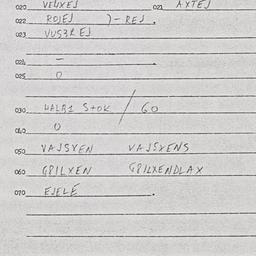 020 VEUXEJ 021 AXTEJ
022 ROJEJ )-REJ.
023 VUS3REJ
024 -
025 O
030 HALB1 STOK / 60
040 O
050 VAJSXEN VAJSXENS
060 GBILXEN GBILXENDLAX
070 EJELÉ